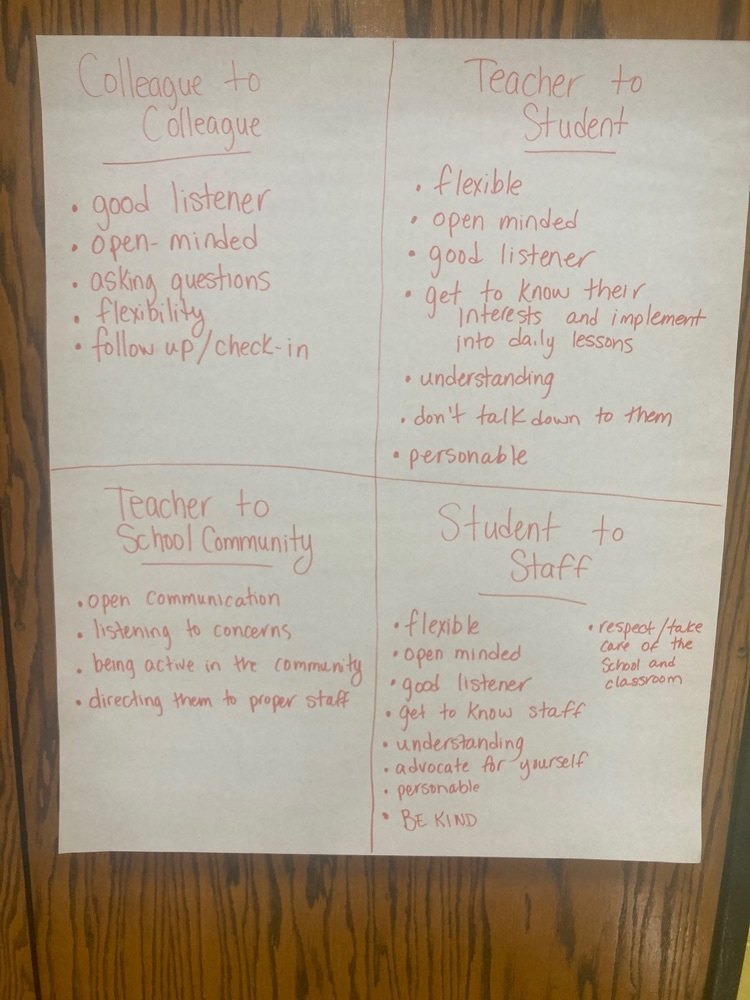 Colleague to
Colleague
• good listener
• open-minded
• asking questions
• flexibility
• follow up/check-in
Teacher to
Student
• flexible
• open minded
• good listener
• get to know their
interests and implement
into daily lessons
• understanding
• don't talk down to them
• personable
Teacher to
School Community
• open communication
• listening to concerns
• being active in the community
• directing them to proper staff
Student to
Staff
• flexible
• open minded
• good listener
• get to know staff
• understanding
• advocate for yourself
• personable
• BE KIND
• respect/take
care of the
school and
classroom